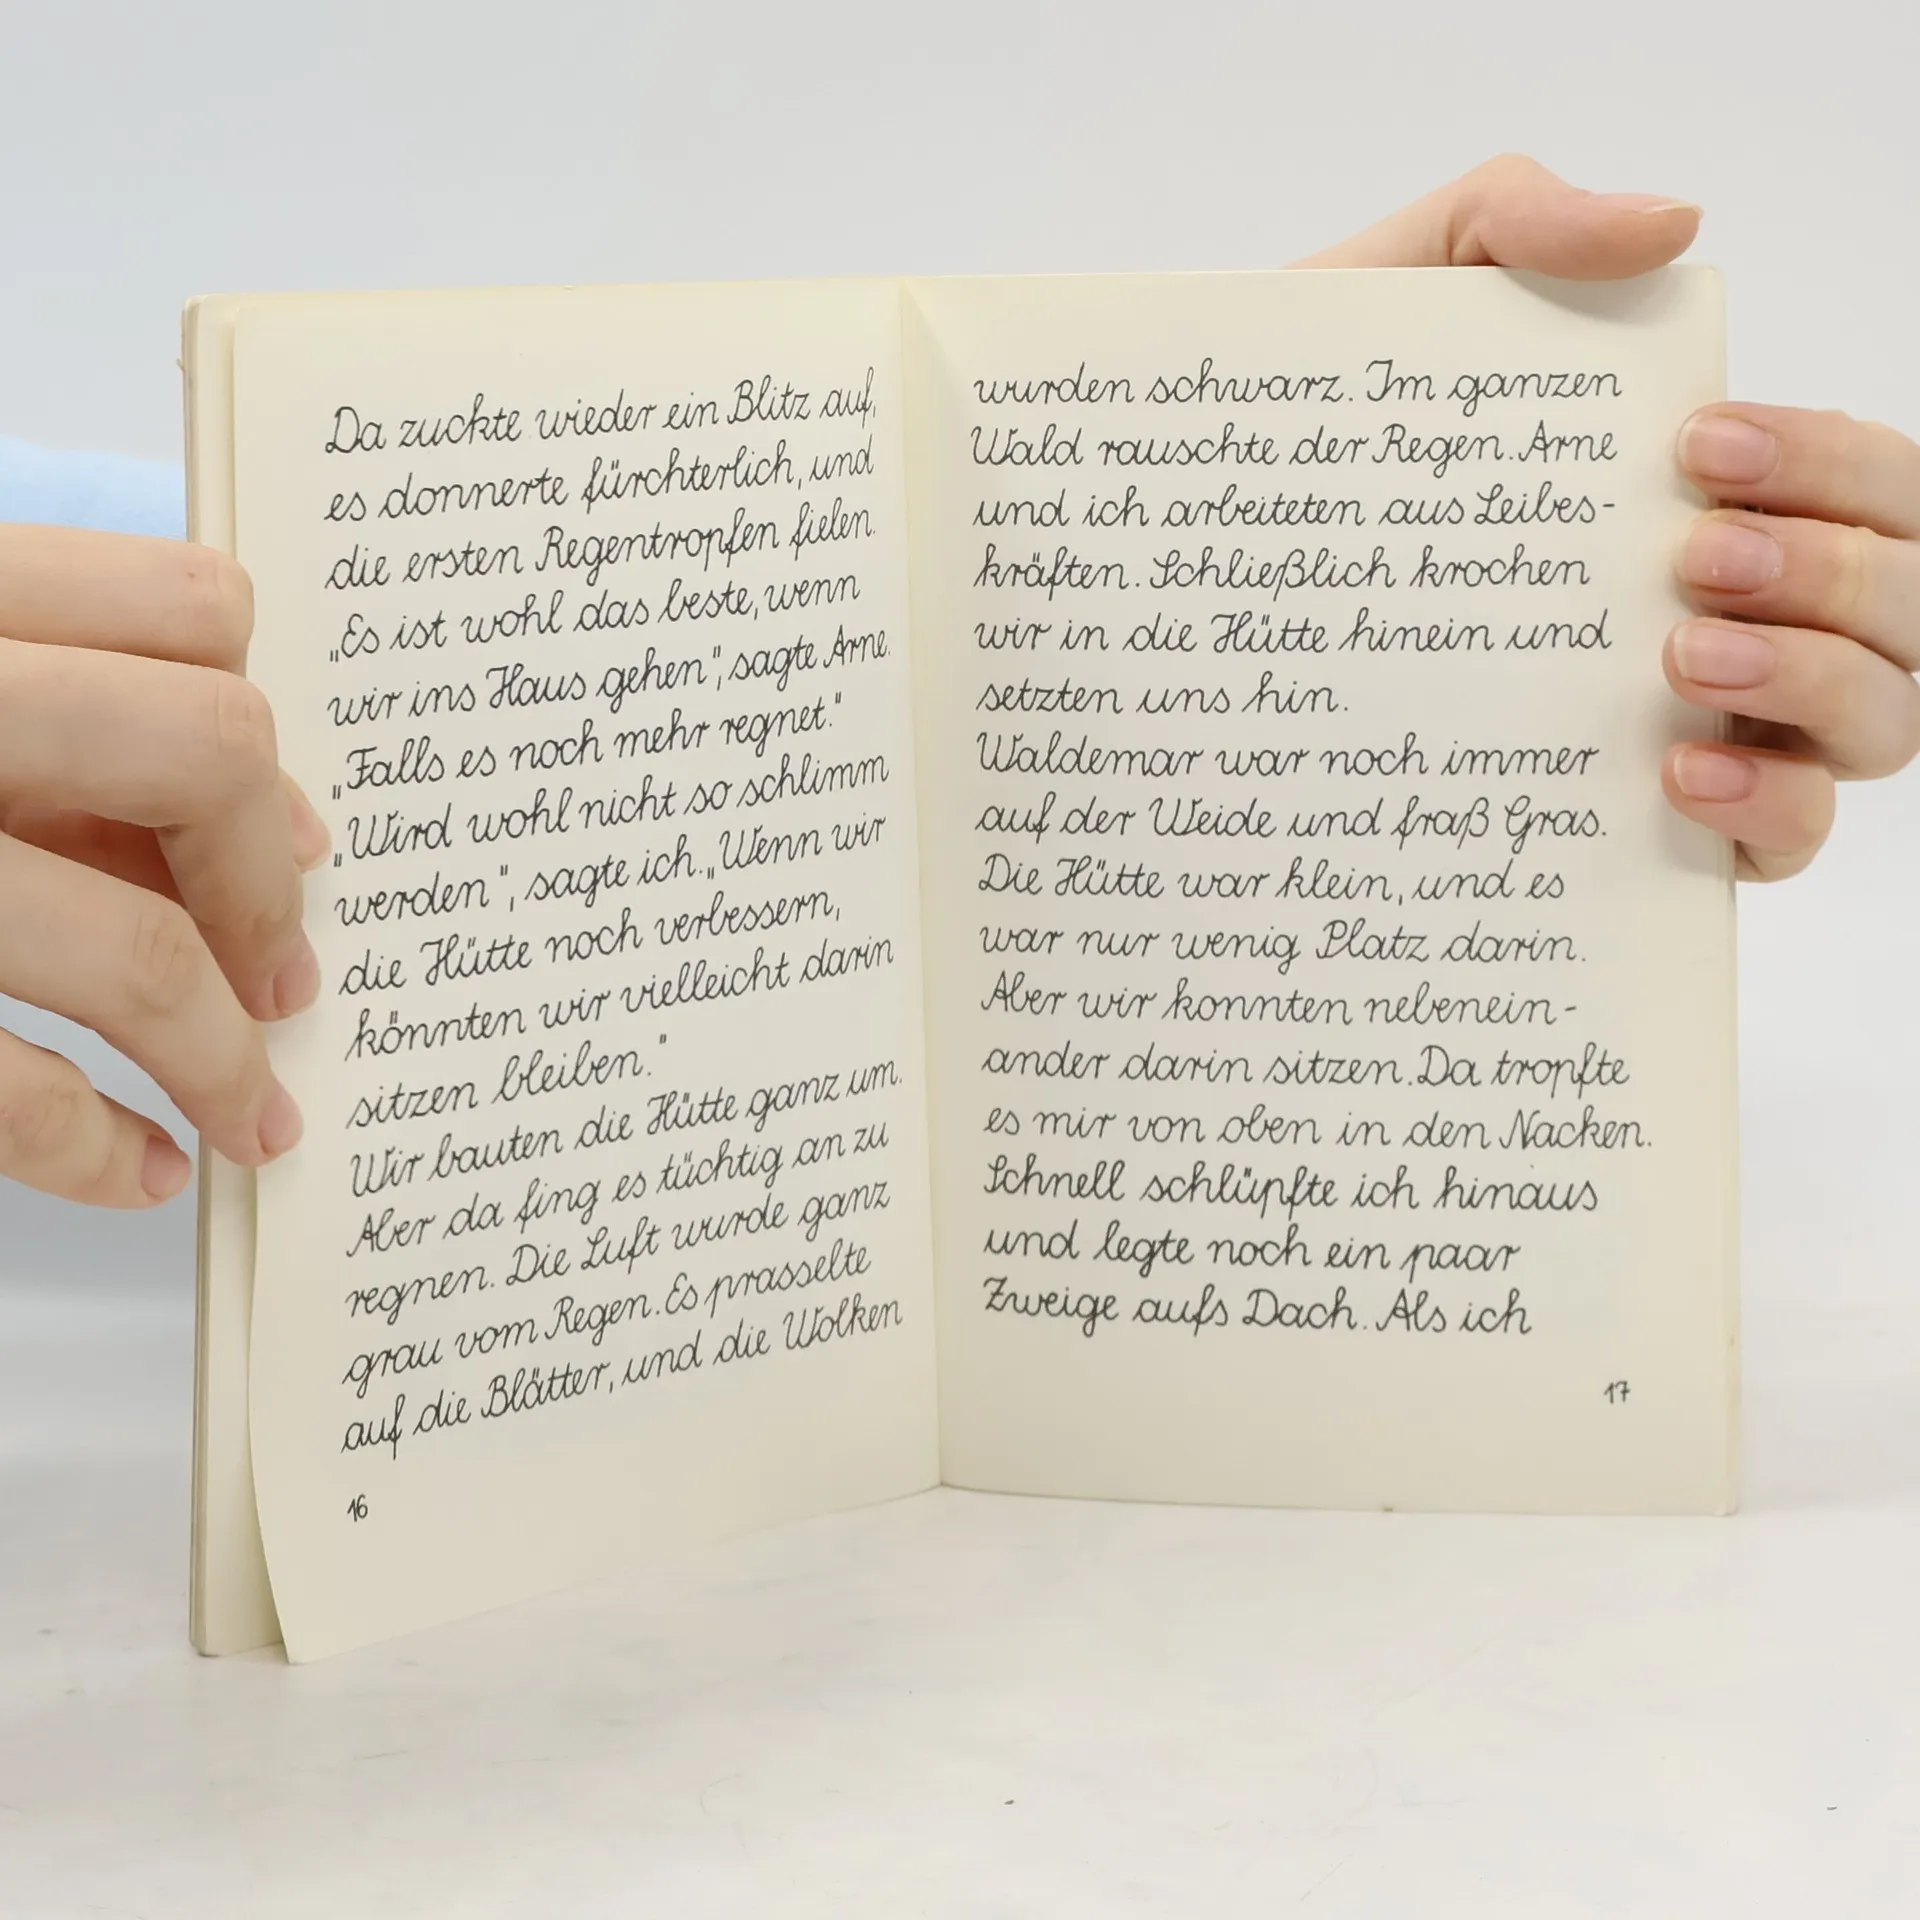 Da zuckte wieder ein Blitz auf,
es donnerte fürchterlich, und
die ersten Regentropfen fielen.
„Es ist wohl das beste, wenn
wir ins Haus gehen", sagte Arne.
„Falls es noch mehr regnet."
„Wird wohl nicht so schlimm
werden", sagte ich. „Wenn wir
die Hütte noch verbessern,
könnten wir vielleicht darin
sitzen bleiben."
Wir bauten die Hütte ganz um.
Aber da fing es tüchtig an zu
regnen. Die Luft wurde ganz
grau vom Regen. Es prasselte
auf die Blätter, und die Wolken
16
wurden schwarz. Im ganzen
Wald rauschte der Regen. Arne
und ich arbeiteten aus Leibes-
kräften. Schließlich krochen
wir in die Hütte hinein und
setzten uns hin.
Waldemar war noch immer
auf der Weide und fraß Gras.
Die Hütte war klein, und es
war nur wenig Platz darin.
Aber wir konnten nebenein-
ander darin sitzen. Da tropfte
es mir von oben in den Nacken.
Schnell schlüpfte ich hinaus
und legte noch ein paar
Zweige aufs Dach. Als ich
17